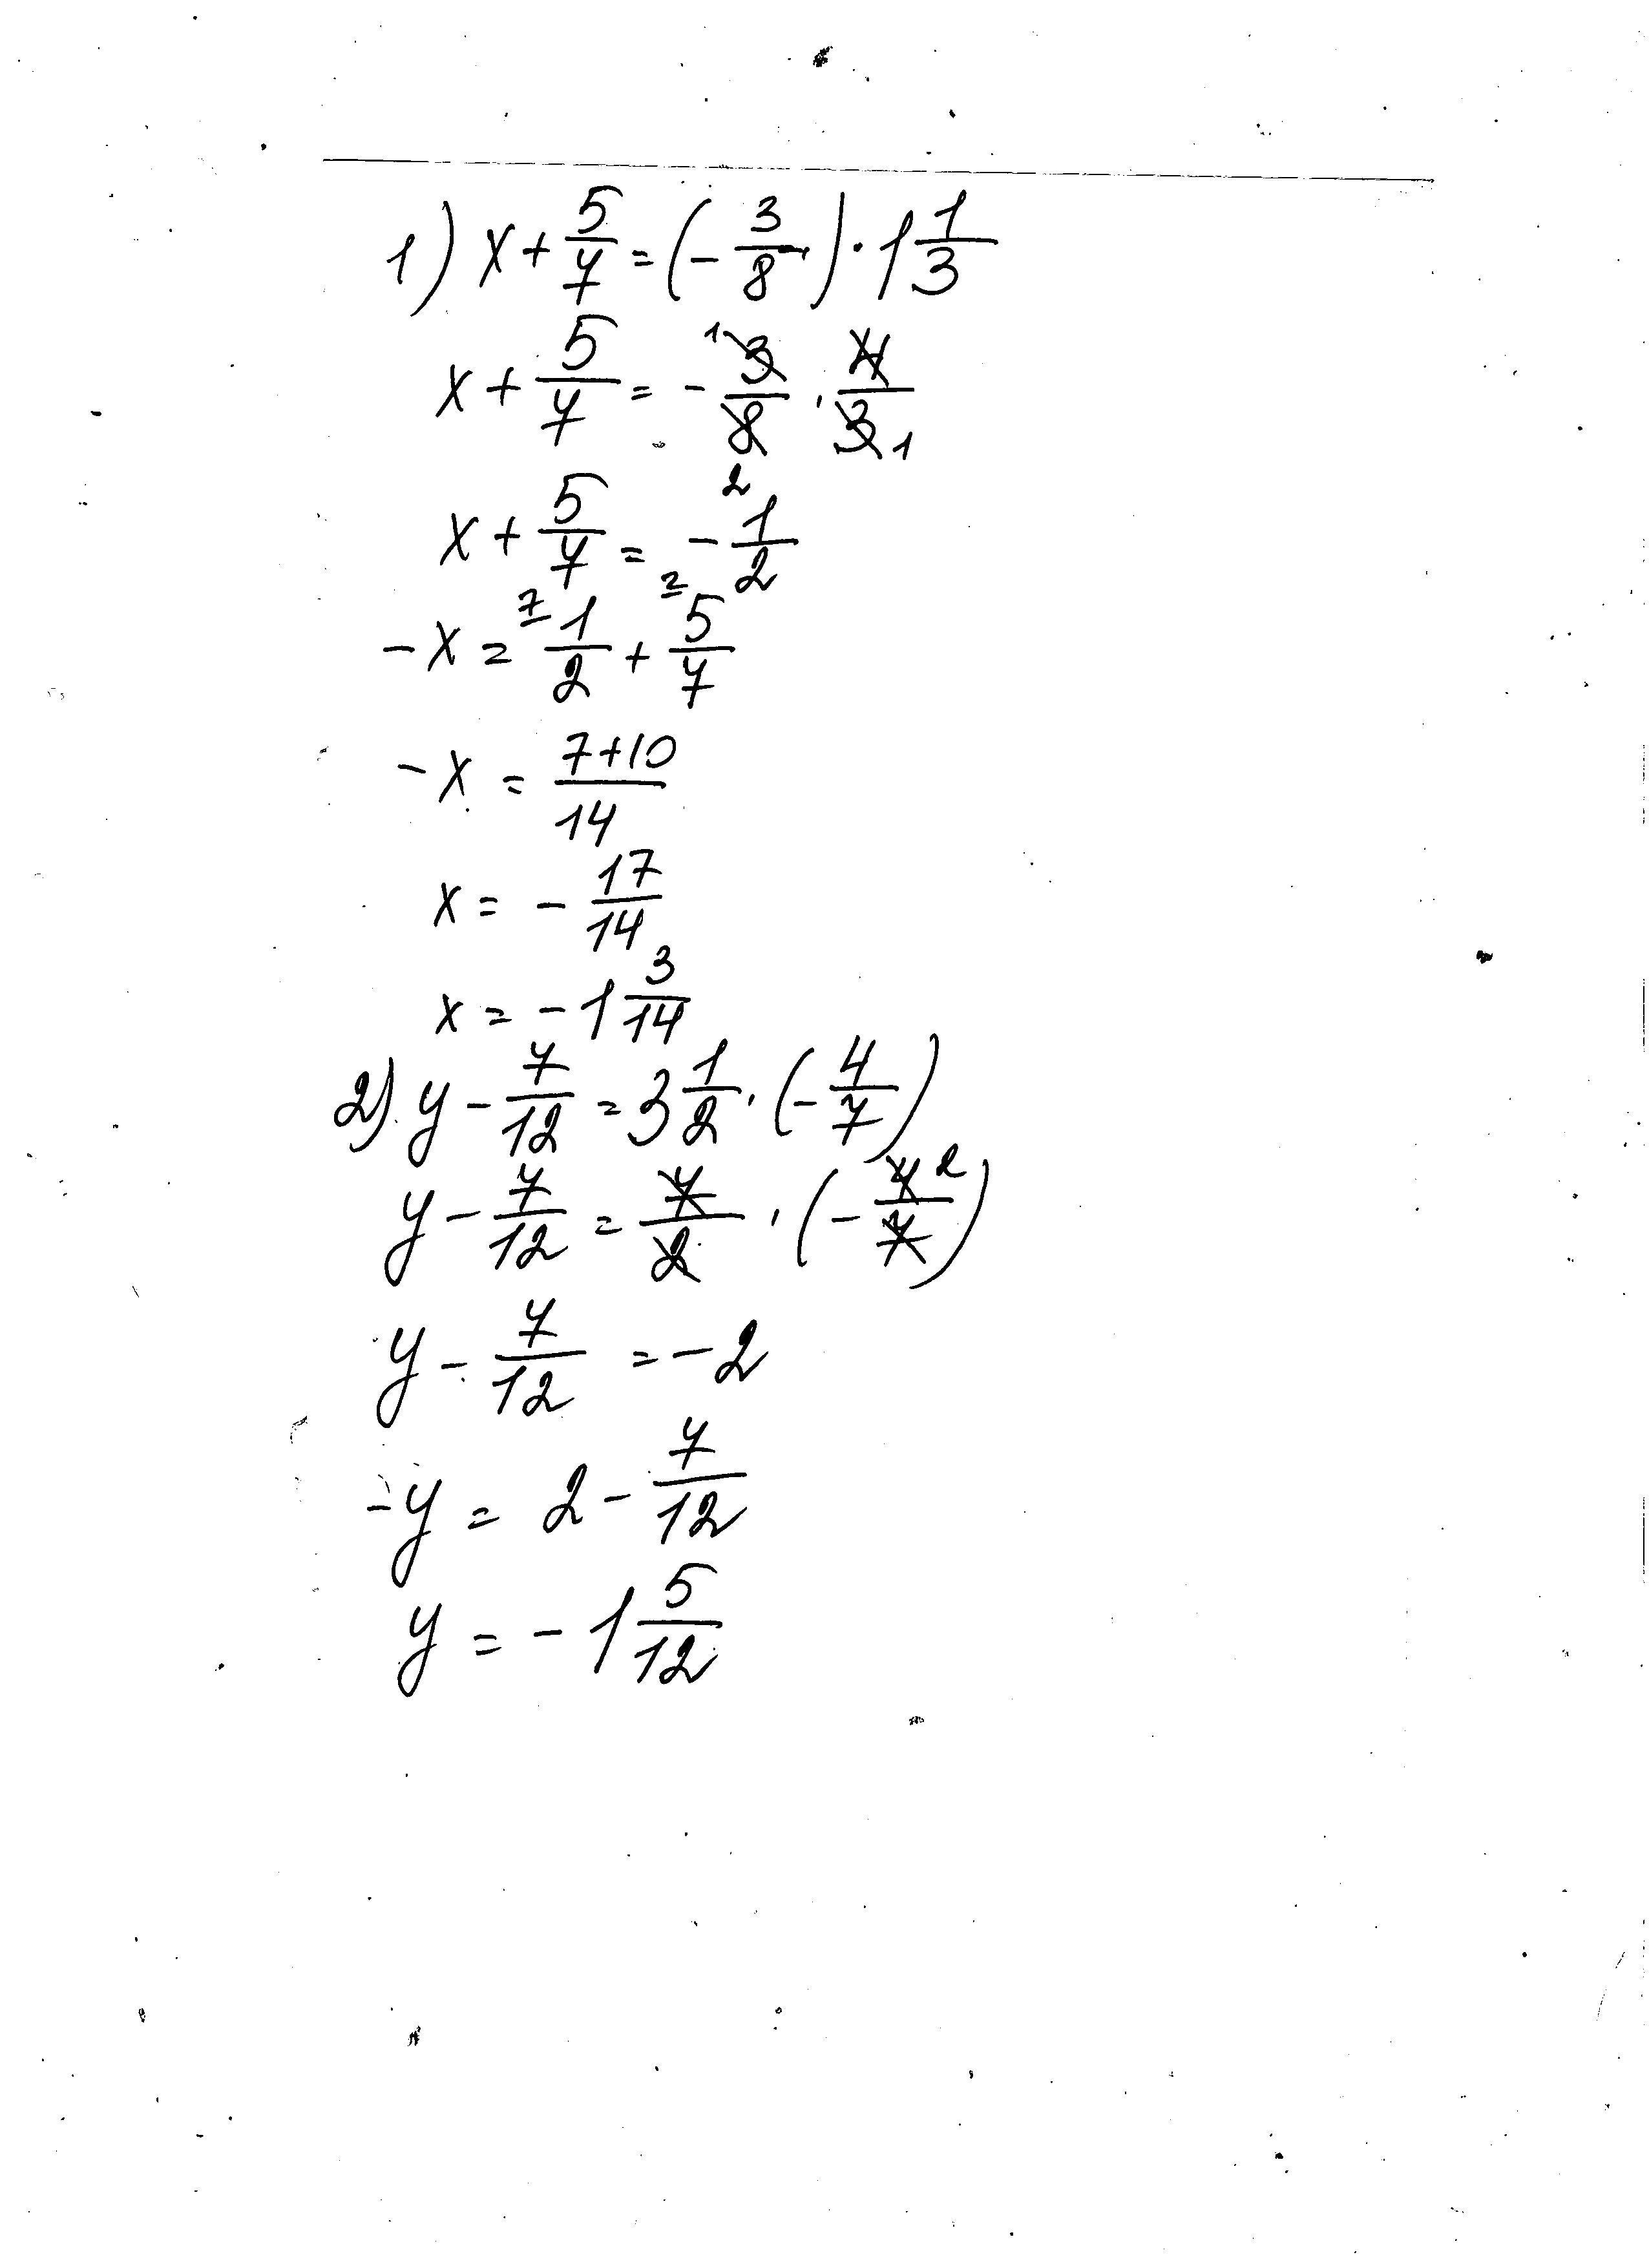 1) x + 5/7 = (- 3/8) · 1 1/3
x + 5/7 = - 3/8 · 4/3
x + 5/7 = - 1/2
- x = 1/2 + 5/7
- x = 7+10/14
x = - 17/14
x = - 1 3/14
2) y - 7/12 = 3 1/2 · (- 4/7)
y - 7/12 = 7/2 · (- 4/7)
y - 7/12 = - 2
- y = 2 - 7/12
y = - 1 5/12